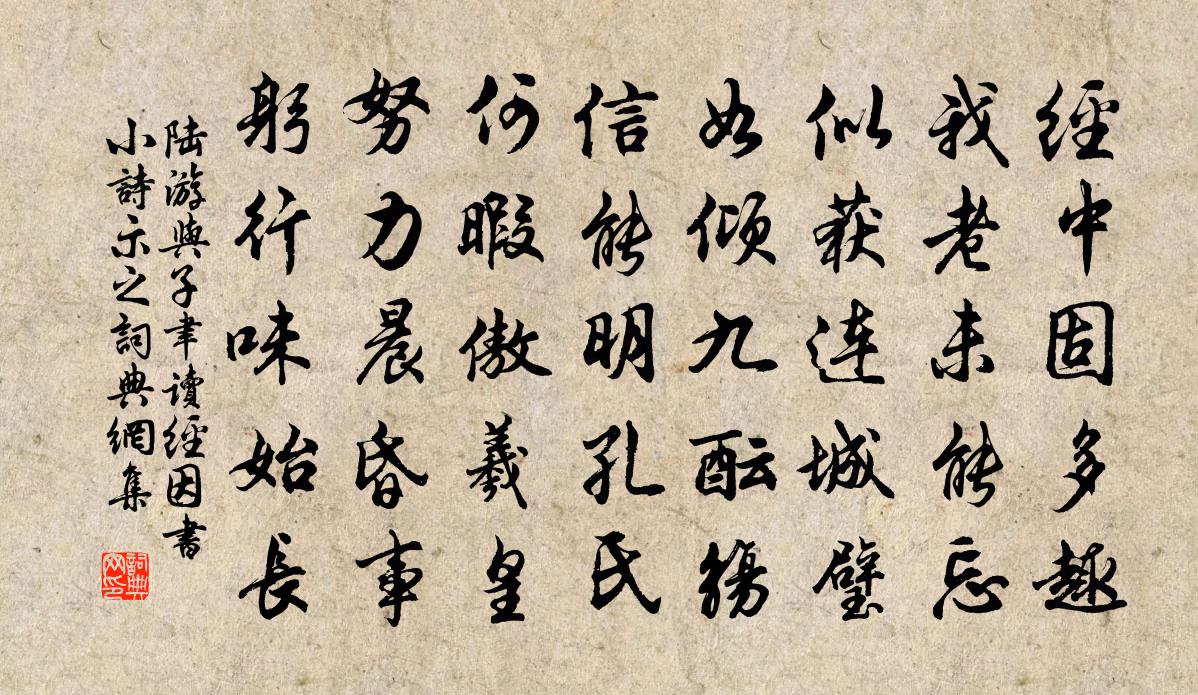 經中固多趣
我老未能忘
似获連城璧
如傾九酝觴
信能明孔氏
何暇傲羲皇
努力晨昏事
躬行味始長
陆游與子聿讀經因書
小詩示之詞典網集
詞典
网印